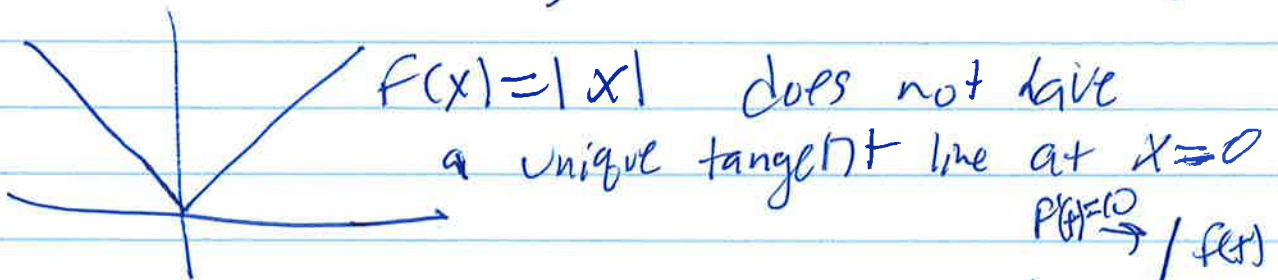 f(x)=|x| does not have
a unique tangent line at x=0
f(t)